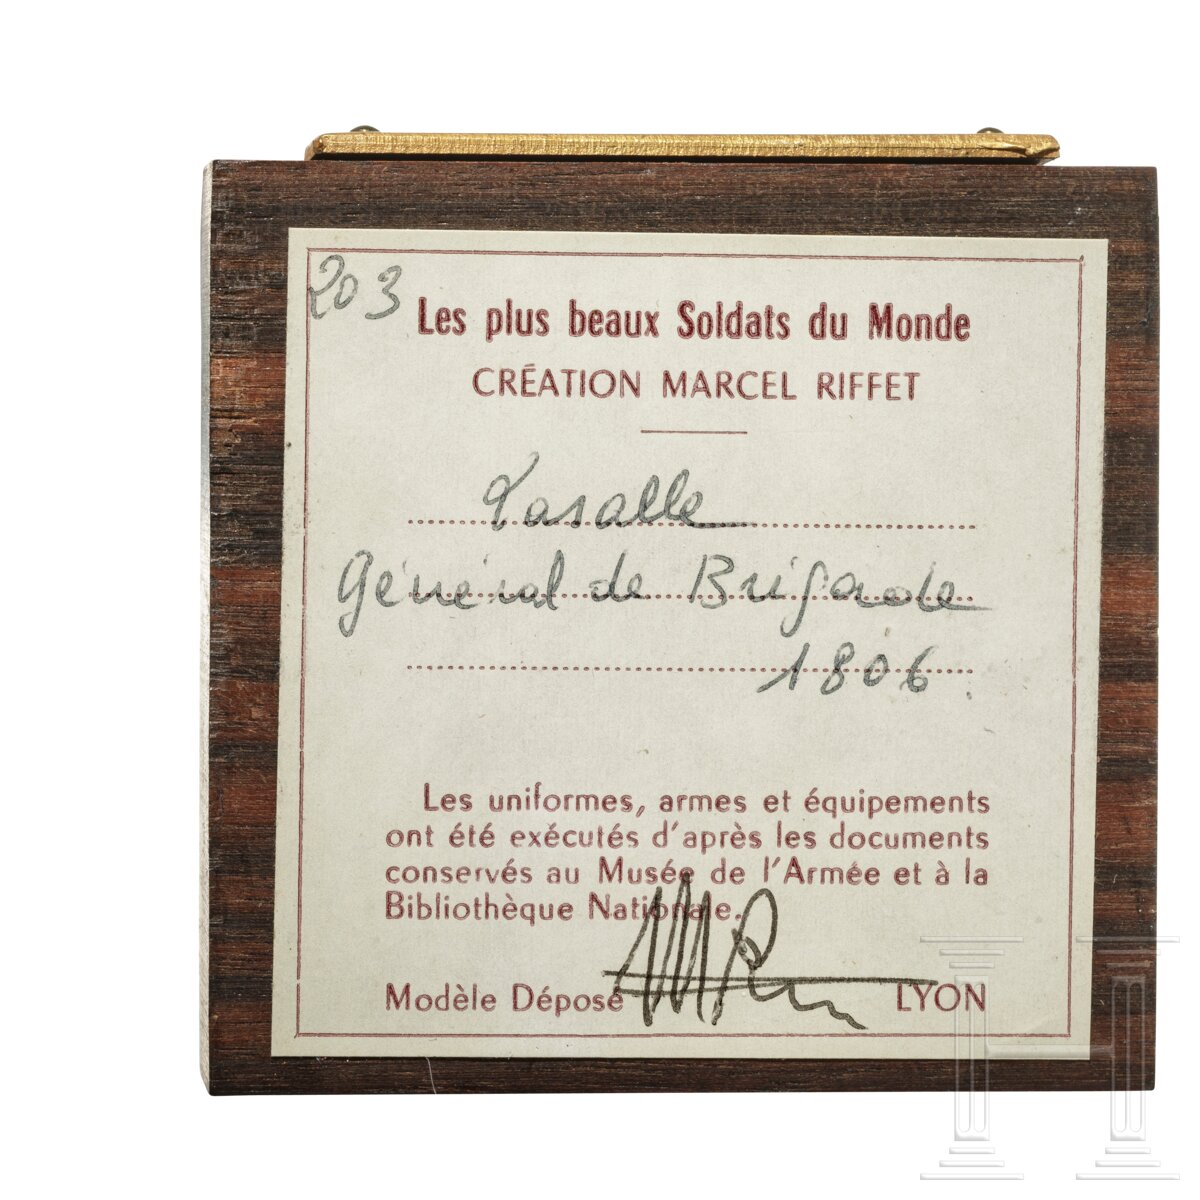 203
Les plus beaux Soldats du Monde
CRÉATION MARCEL RIFFET
Lasalle
Général de Brigade
1806.
Les uniformes, armes et équipements
ont été exécutés d'après les documents
conservés au Musée de l'Armée et à la
Bibliothèque Nationale.
Modèle Déposé LYON